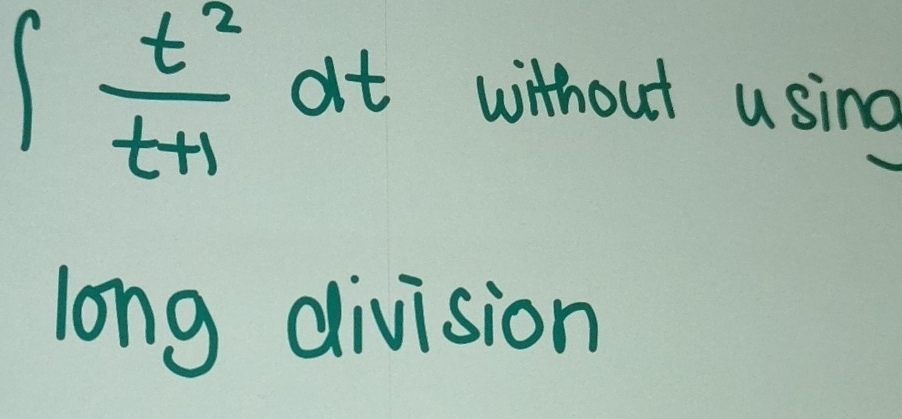 ∫ t²/(t+1) dt without using
long division